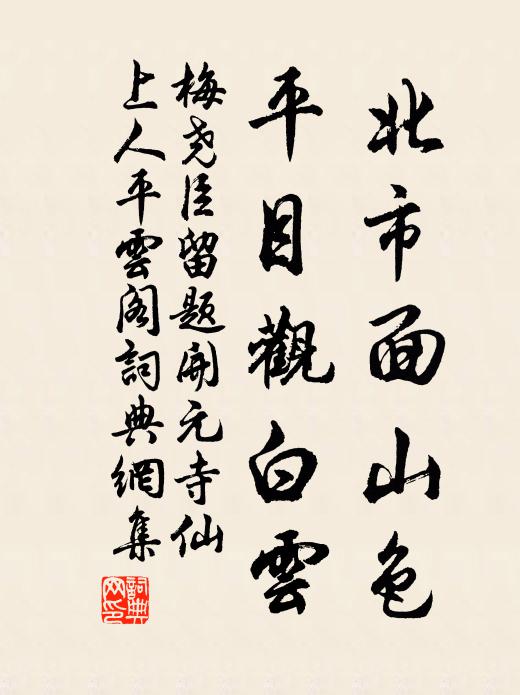 北市面山色
平目觀白雲
梅堯臣留題開元寺仙
上人平雲閣詞典網集
詞典網印